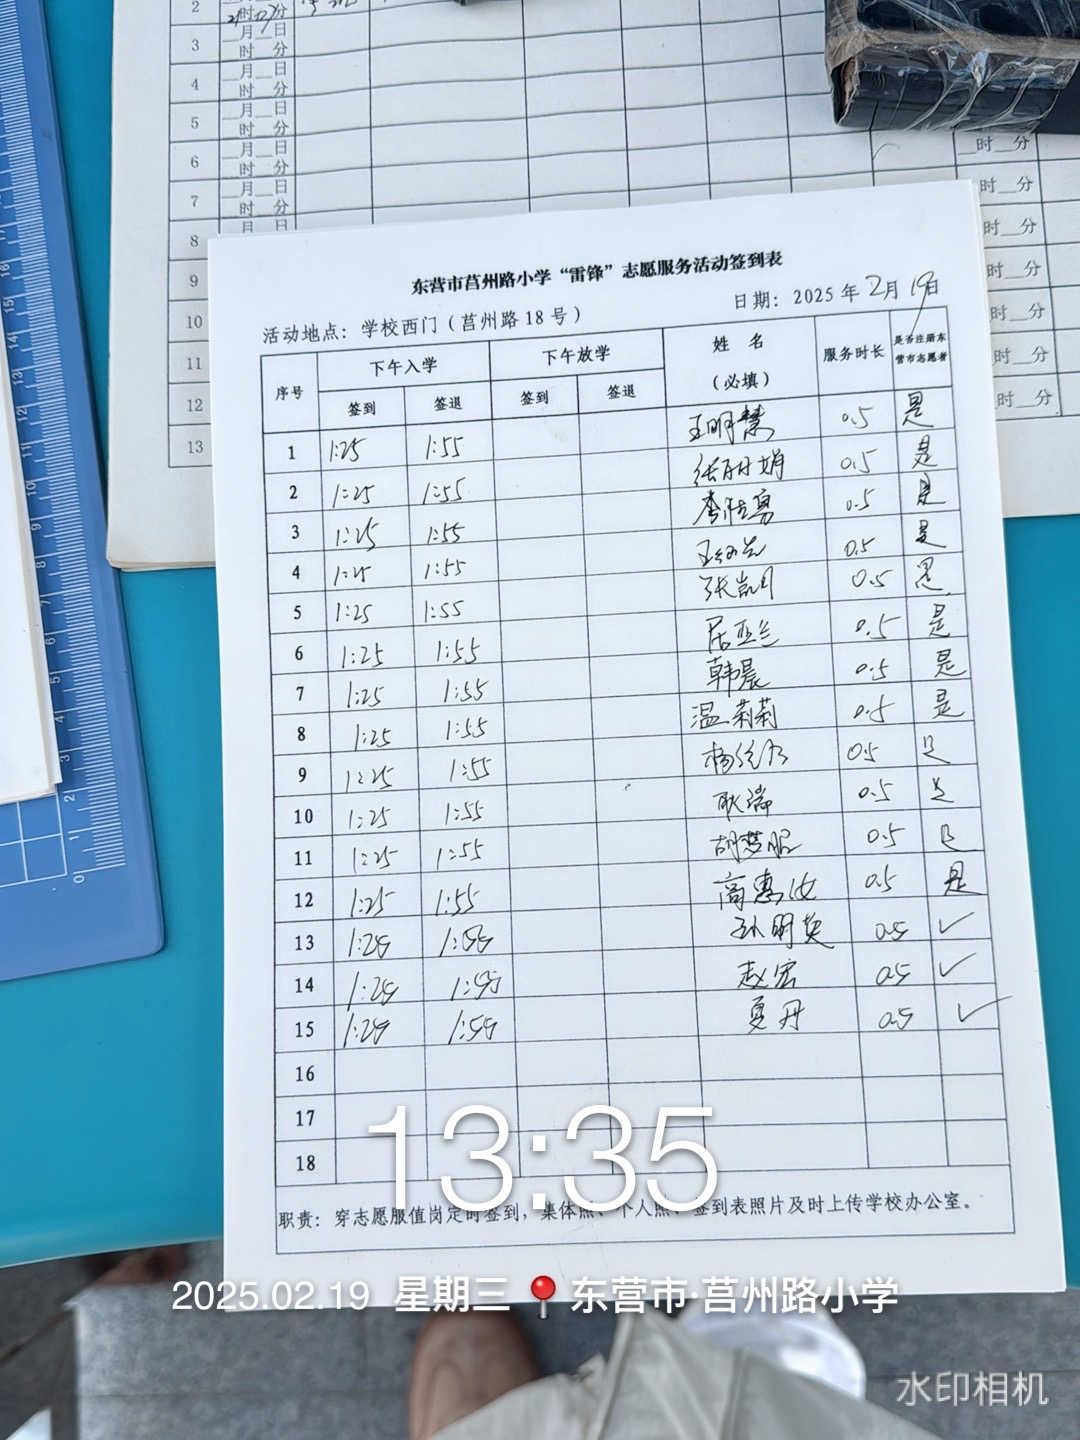 2
时 分
3 月 日
时 分
4 月 日
时 分
5 月 日
时 分
6 月 日
时 分
7 月 日
时 分
8 月 日
9
10
11
12
13
时 分
时 分
时 分
时 分
时 分
时 分
东营市莒州路小学“雷锋”志愿服务活动签到表
活动地点：学校西门（莒州路18号） 日期：2025年2月19日
序号 下午入学 下午放学 姓名（必填） 服务时长 是否注册东营市志愿者
签到 签退 签到 签退
1 1:25 1:55 王明慧 0.5 是
2 1:25 1:55 张丽娟 0.5 是
3 1:25 1:55 0.5 是
4 1:25 1:55 0.5 是
5 1:25 1:55 张凯月 0.5 是
6 1:25 1:55 居亚兰 0.5 是
7 1:25 1:55 韩晨 0.5 是
8 1:25 1:55 温莉莉 0.5 是
9 1:25 1:55 0.5 是
10 1:25 1:55 耿瑞 0.5 是
11 1:25 1:55 0.5 是
12 1:25 1:55 高惠汝 0.5 是
13 1:25 1:55 孙明英 0.5 ✓
14 1:25 1:55 赵宏 0.5 ✓
15 1:25 1:55 夏丹 0.5 ✓
16
17
18
职责：穿志愿服值岗定时签到，集体照、个人照、签到表照片及时上传学校办公室。
13:35
2025.02.19 星期三 📍 东营市·莒州路小学
水印相机